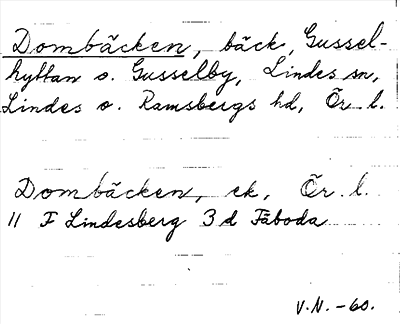 Dombäcken, bäck, Gussel-
hyttan o. Gusselby, Lindes sn,
Lindes o. Ramsbergs hd, Ör. l.
Dombäcken, ek, Ör. l.
11 F Lindesberg 3 d Fåboda
V.N. -60.